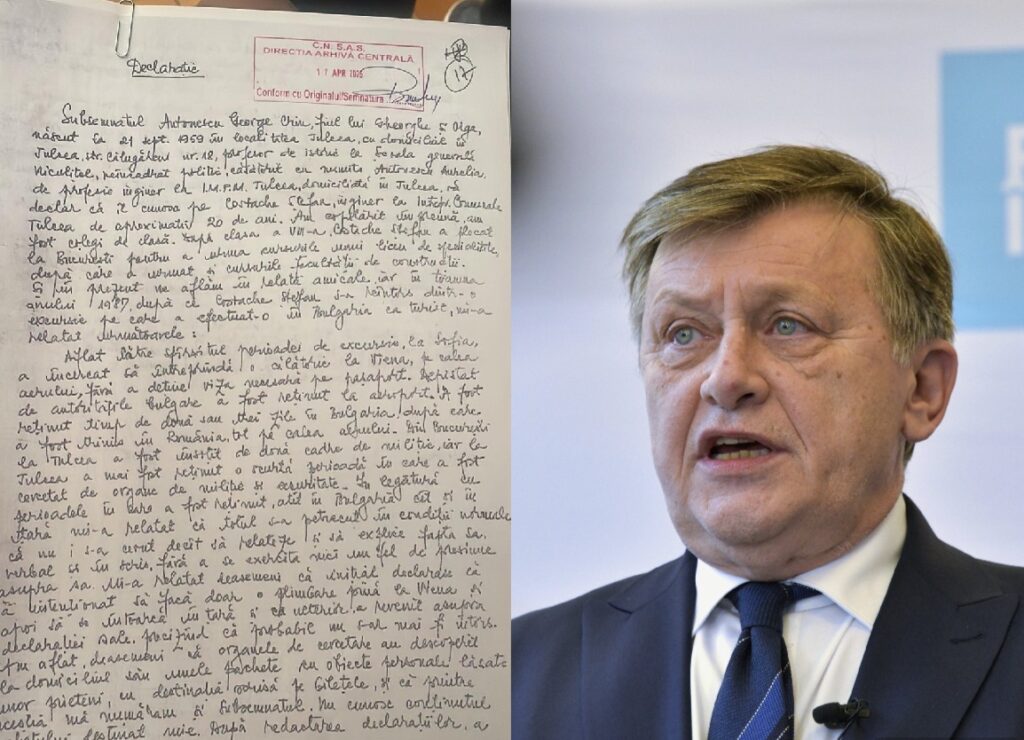 Declarație
C.N.S.A.S.
DIRECTIA ARHIVA CENTRALĂ
17 APR 2025
Conform cu Originalul/Semnatura
17
Subsemnatul Antonescu George Crin, fiul lui Gheorghe și Olga,
născut la 21 sept. 1959 în localitatea Tulcea, cu domiciliul în
Tulcea, str. Călugăreni nr. 18, profesor de istorie la Școala generală
Niculițel, neîncadrat politic, căsătorit cu numita Antonescu Aurelia,
de profesie inginer la I.M.P.M. Tulcea, domiciliată în Tulcea, vă
declar că îl cunosc pe Costache Ștefan, inginer la Întrepr. Comunale
Tulcea de aproximativ 20 de ani. Am copilărit împreună, am
fost colegi de clasă. După clasa a VIII-a, Costache Ștefan a plecat
la București pentru a urma cursurile unui liceu de specialitate,
după care a urmat și cursurile facultății de construcții.
Și în prezent ne aflăm în relații amicale, iar în toamna
anului 1987, după ce Costache Ștefan s-a reîntors dintr-o
excursie pe care a efectuat-o în Bulgaria ca turist, mi-a
relatat următoarele:
Aflat către sfîrșitul perioadei de excursie, la Sofia,
a încercat să întreprindă o călătorie la Viena, pe calea
aerului, fără a deține viza necesară pe pașaport. Depistat
de autoritățile bulgare a fost reținut la aeroport. A fost
reținut timp de două sau trei zile în Bulgaria, după care
a fost trimis în România, tot pe calea aerului. Din București
la Tulcea a fost însoțit de două cadre de miliție, iar la
Tulcea a mai fost reținut o scurtă perioadă în care a fost
cercetat de organe de miliție și securitate. În legătură cu
perioadele în care a fost reținut, atît în Bulgaria cît și în
țară mi-a relatat că totul s-a petrecut în condiții normale
că nu i s-a cerut decît să relateze și să explice fapta sa,
verbal și în scris, fără a se exercita nici un fel de presiune
asupra sa. Mi-a relatat deasemeni că inițial declarase că
a intenționat să facă doar o plimbare pînă la Viena și
apoi să se întoarcă în țară și că ulterior a revenit asupra
declarației sale, precizînd că probabil nu s-ar mai fi întors.
Am aflat, deasemeni, că organele de cercetare au descoperit
la domiciliul său unele pachete cu obiecte personale lăsate
unor prieteni, cu destinația scrisă pe biletele, și că printre
aceștia mă număram și subsemnatul. Nu cunosc conținutul
destinat mie. După redactarea declarațiilor, a